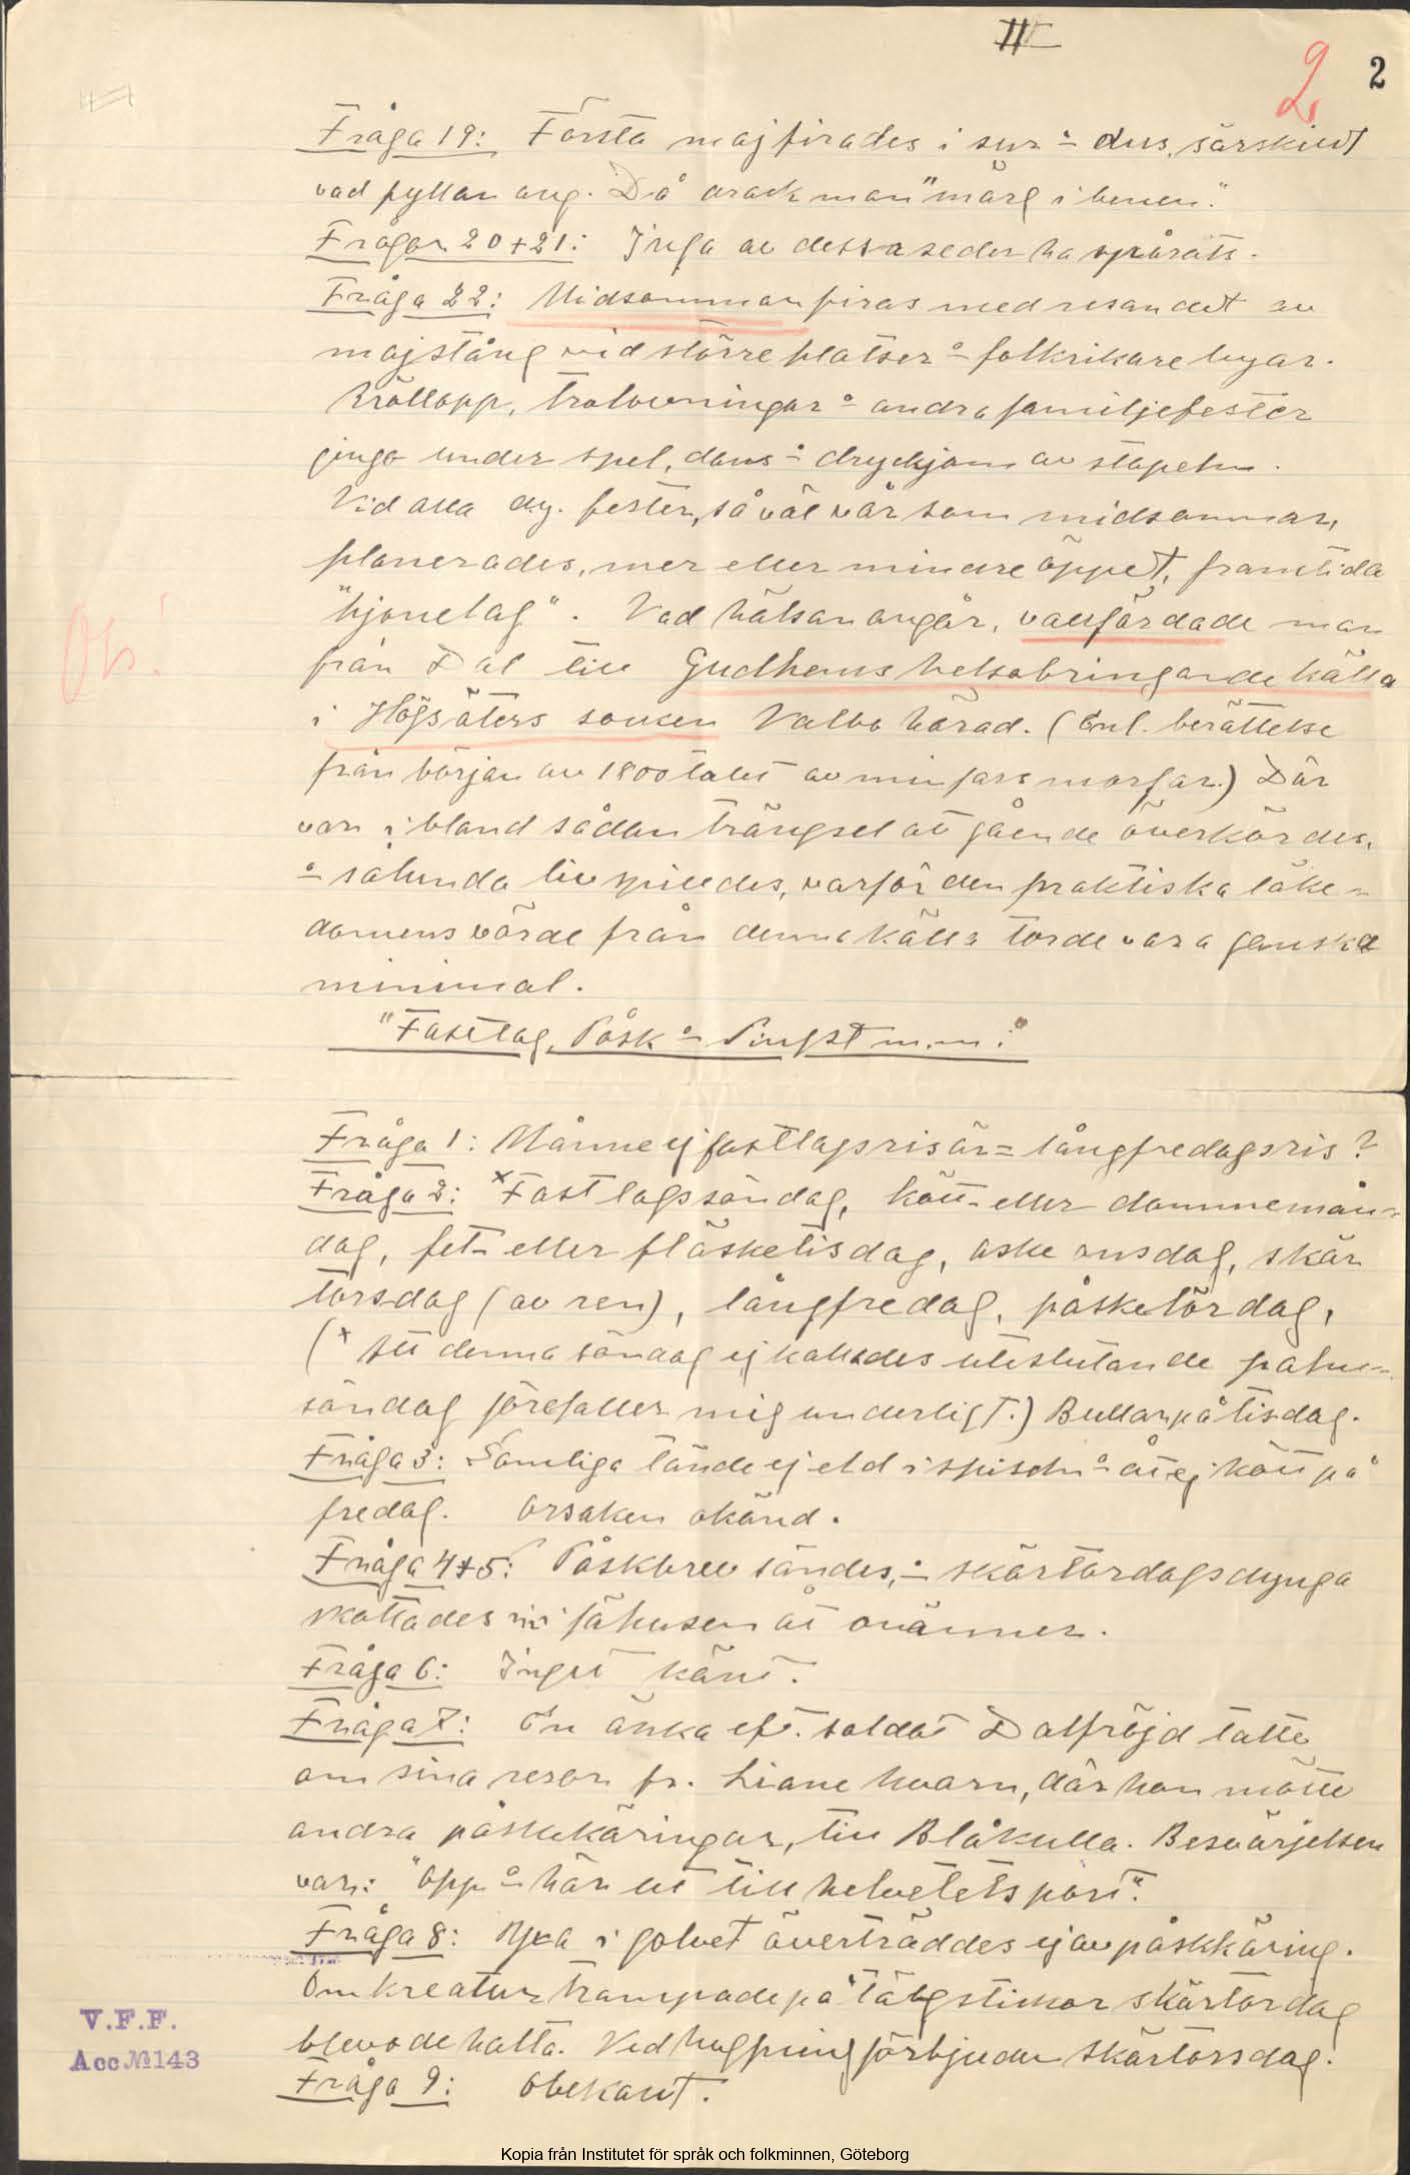 II
2
2
Fråga 19: Första maj firades i sus o dus, särskildt
vad fyllan ang. Då drack man "märg i benen".
Frågor 20+21: Inga av dessa seder ha spårats.
Fråga 22: Midsommar firas med resandet av
majstång vid större platser o folkrikare byar.
Bröllopp, trolovningar o andra familjefester
gingo under spel, dans o dryckjom av stapeln.
Vid alla dy. fester, såväl vår som midsommar,
planerades, mer eller mindre öppet, framtida
"hjonelag". Vad hälsan angår, vallfärdade man
från Dal till Gudhems helsobringande källa
i Högsäters socken Valbo härad. (Enl. berättelse
från början av 1800talet av min fars morfar.) Där
var ibland sådan trängsel att gående överkördes,
o sålunda liv spilldes, varför den praktiska läke-
domens värde från denna källa torde vara ganska
minimal.
Obs!
"Fastlag, Påsk o Pingst m.m."
Fråga 1: Månne ej fastlagsris är = långfredagsris?
Fråga 2: x Fastlagssöndag, kött- eller dammemån-
dag, fet- eller fläsketisdag, aske onsdag, skär
torsdag (av ren), långfredag, påskelördag,
(x att denna söndag ej kallades uteslutande palm-
söndag förefaller mig underligt.) Bullar på tisdag.
Fråga 3: Somliga tände ej eld i spiseln o åt ej kött på
fredag. Orsaken okänd.
Fråga 4+5: Påskbrev sändes, o skärtordagsdynga
skottades in i fähusen åt ovänner.
Fråga 6: Inget känt.
Fråga 7: En änka eft. soldat Dalfröjd talte
om sina resor fr. Liane kvarn, där hon mötte
andra påskkäringar, till Blåkulla. Besvärjelsen
var: "Opp o här ut till helvetets port".
Fråga 8: Yxa i golvet överträddes ej av påskkäring.
Om kreatur trampade på tälgstickor skärtordag
blevo de halta. Vedhuggning förbjuden skärtorsdag.
Fråga 9: Obekant.
V.F.F.
Acc № 143
Kopia från Institutet för språk och folkminnen, Göteborg